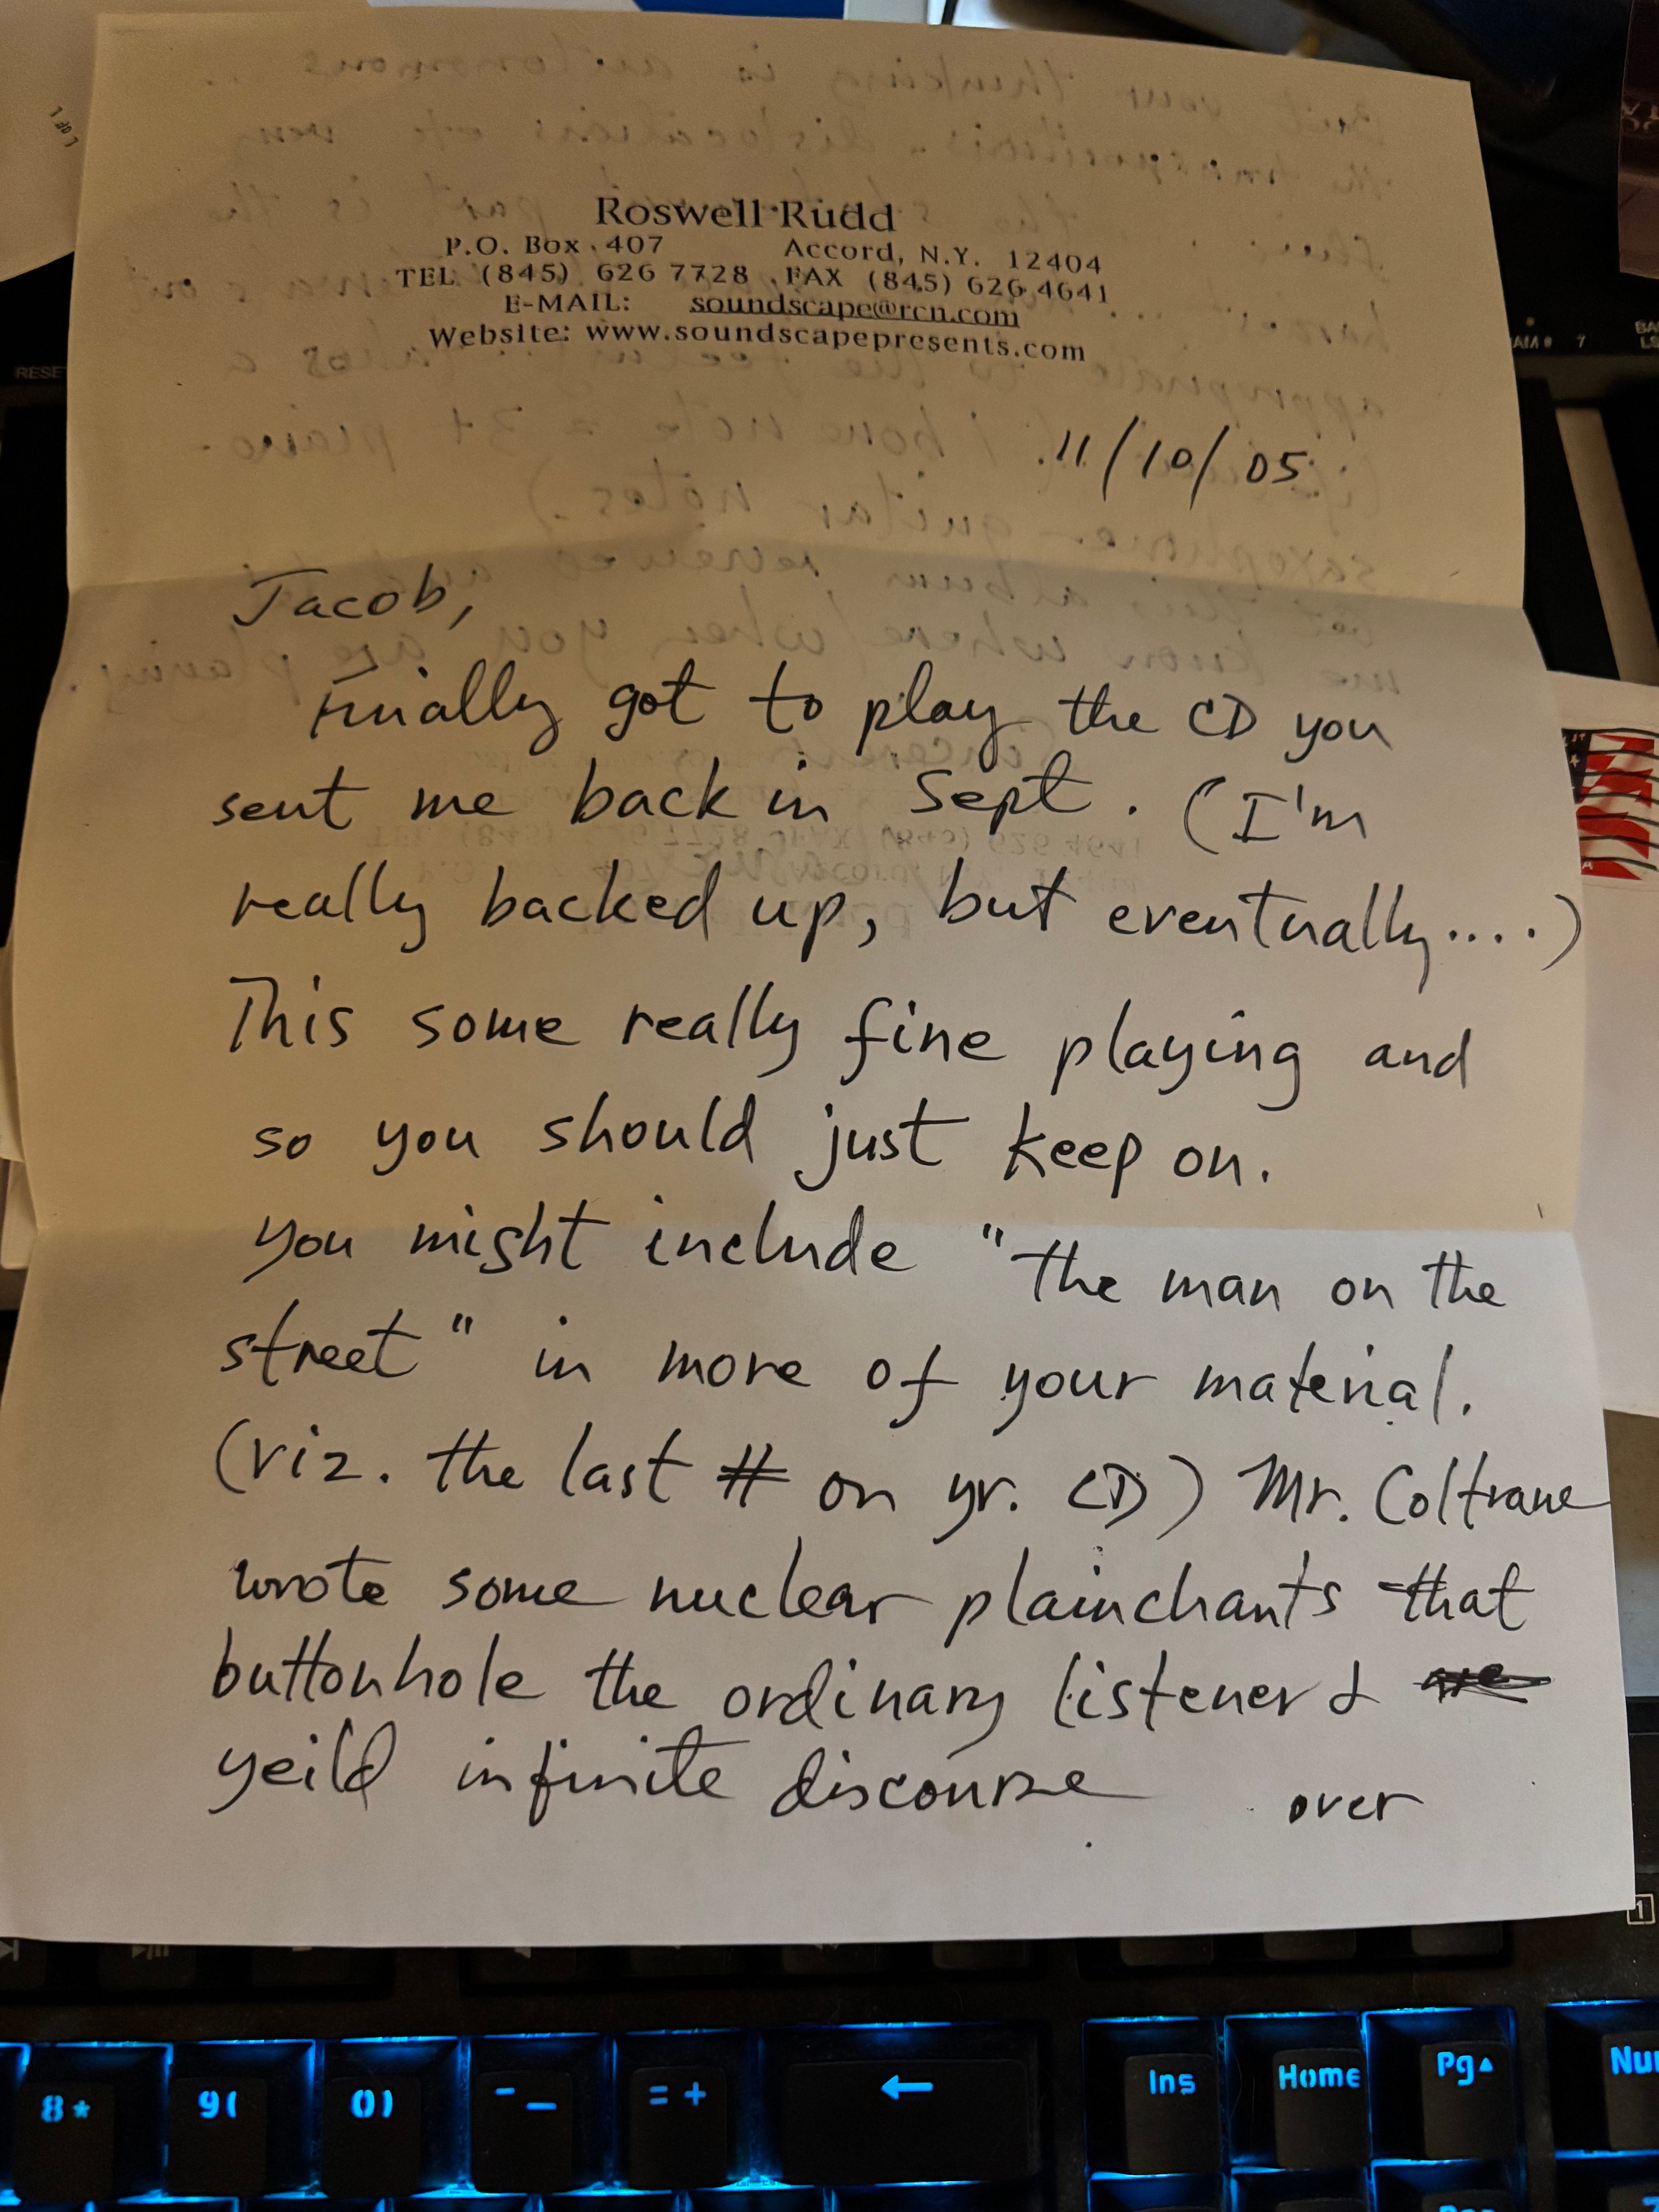 Roswell Rudd
P.O. Box 407 Accord, N.Y. 12404
TEL (845) 626 7728 FAX (845) 626 4641
E-MAIL: soundscape@rcn.com
Website: www.soundscapepresents.com
11/10/05
Jacob,
Finally got to play the CD you
sent me back in Sept. (I'm
really backed up, but eventually....)
This some really fine playing and
so you should just keep on.
You might include "the man on the
street" in more of your material.
(viz. the last # on yr. CD) Mr. Coltrane
wrote some nuclear plainchants that
buttonhole the ordinary listener &
yeild infinite discourse over
8* 9( 0) -_ =+ ← Ins Home Pg▲ Num